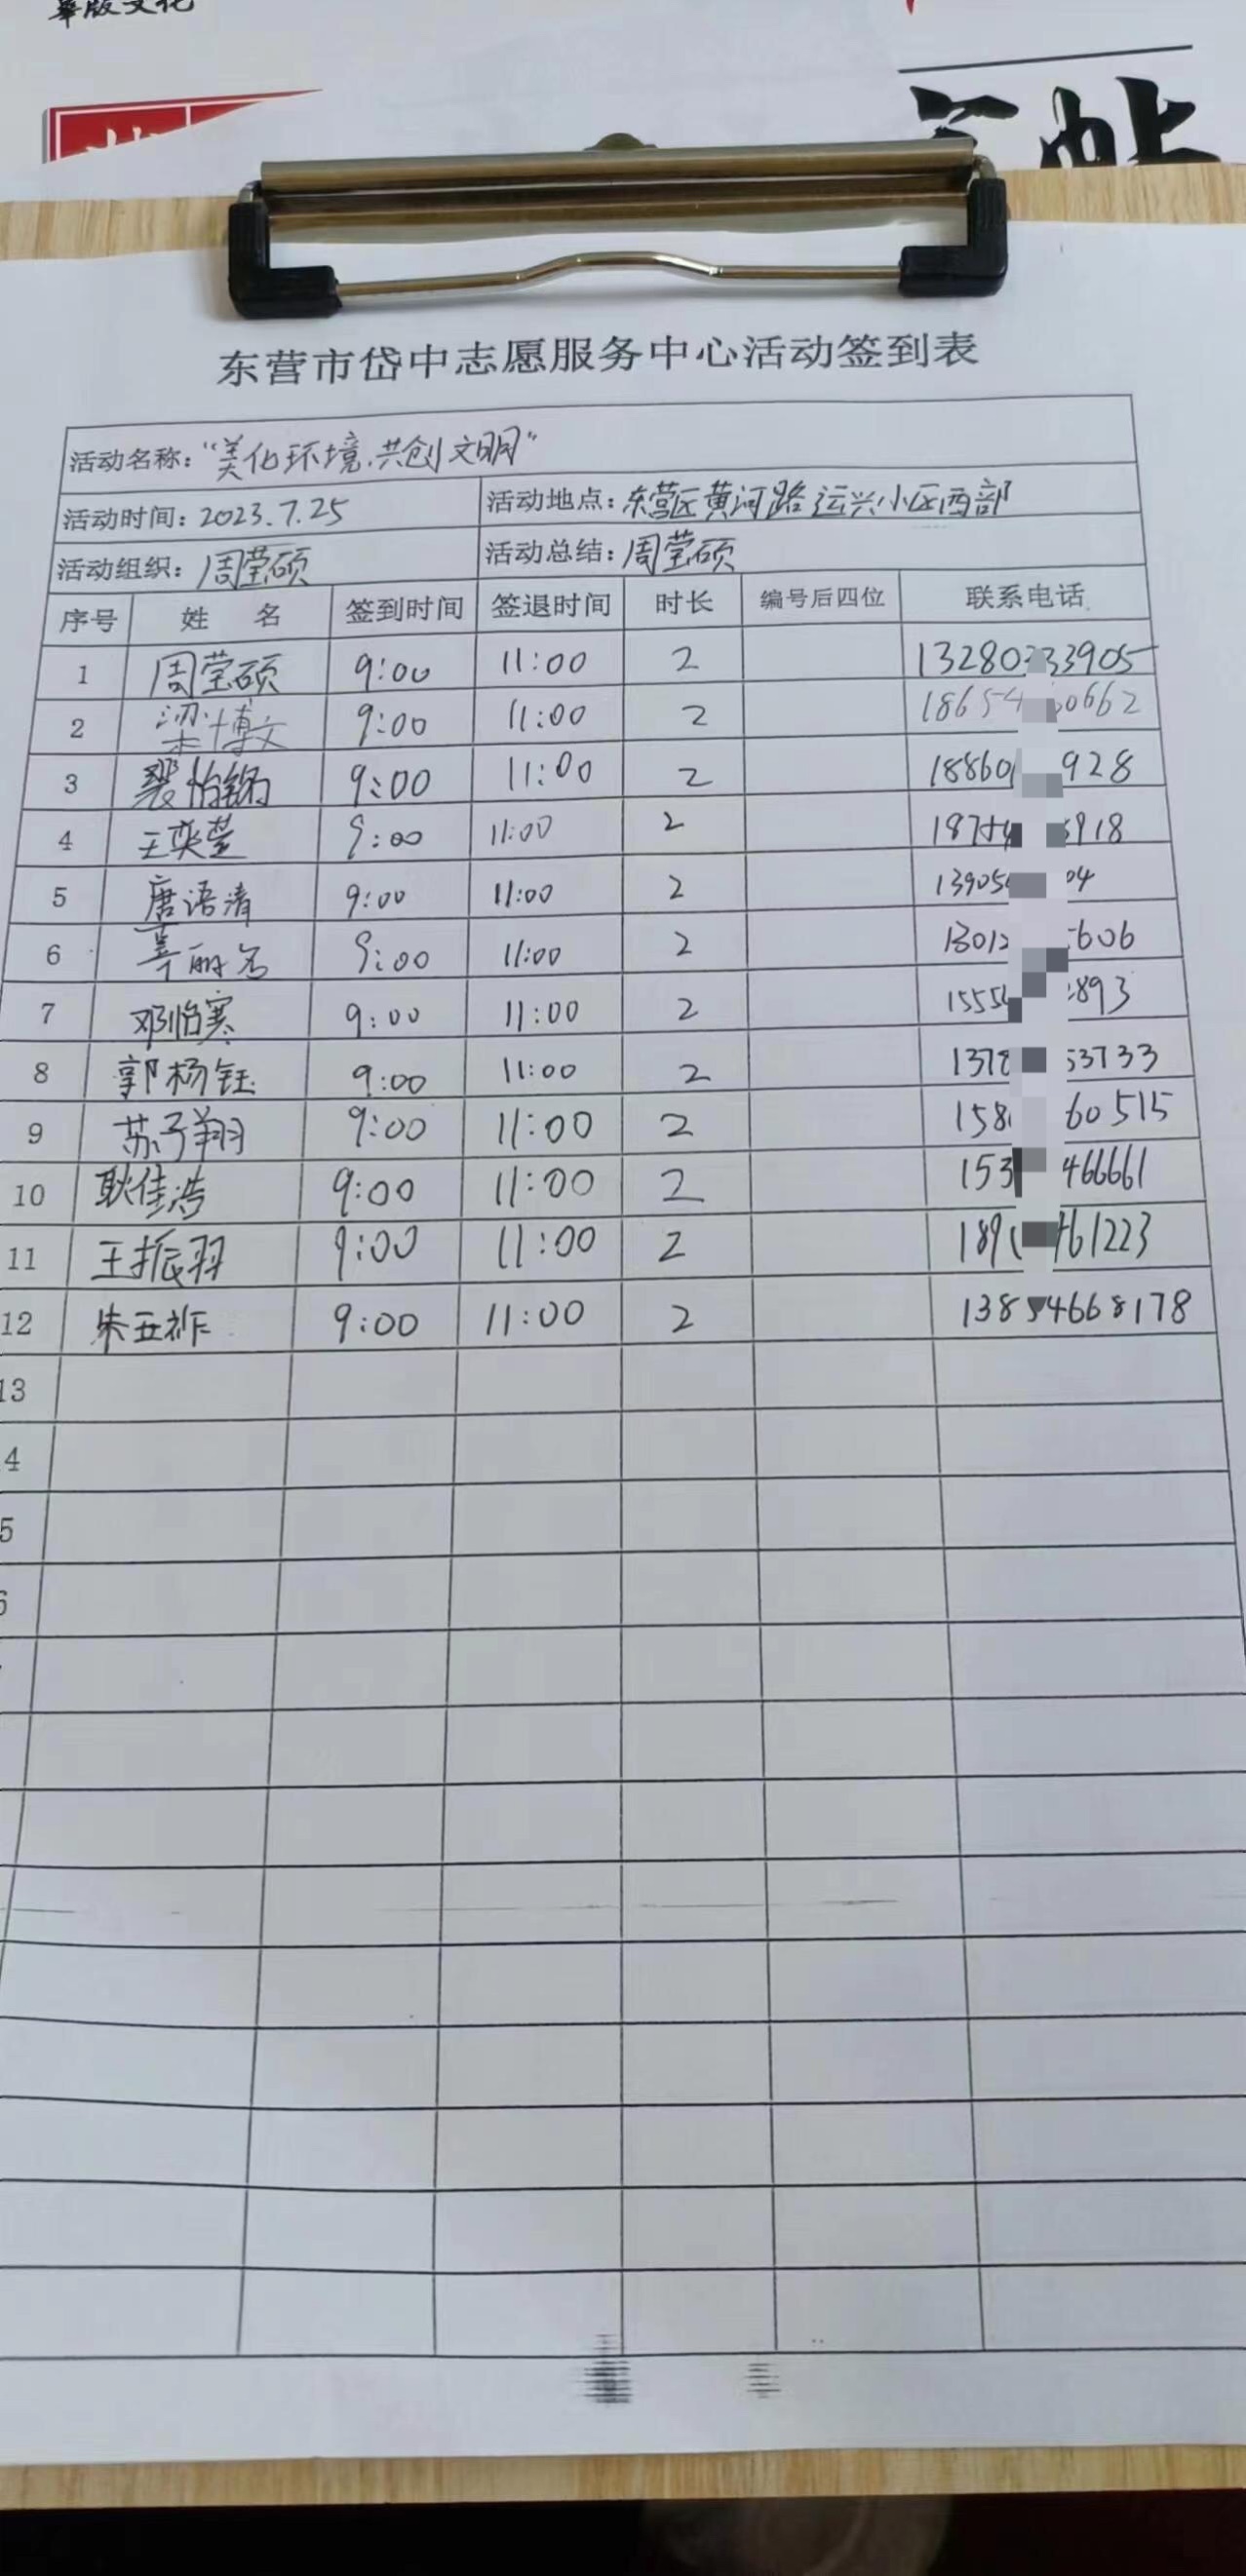 華版文化
东营市岱中志愿服务中心活动签到表
活动名称：“美化环境.共创文明”
活动时间：2023.7.25 活动地点：东营区黄河路运兴小区西部
活动组织：周莹硕 活动总结：周莹硕
序号 姓 名 签到时间 签退时间 时长 编号后四位 联系电话
1 周莹硕 9:00 11:00 2 13280 33905
2 梁博文 9:00 11:00 2 18654 0662
3 裴怡锦 9:00 11:00 2 18860 928
4 王奕萱 9:00 11:00 2 918
5 唐语清 9:00 11:00 2 13905 04
6 9:00 11:00 2 13012 606
7 邓怡寒 9:00 11:00 2 1555 893
8 郭杨钰 9:00 11:00 2 1378 53733
9 苏子翔 9:00 11:00 2 158 60515
10 耿佳浩 9:00 11:00 2 153 466661
11 王振羽 9:00 11:00 2 189 461223
12 朱亚祚 9:00 11:00 2 138 4668178
13
4
5
6